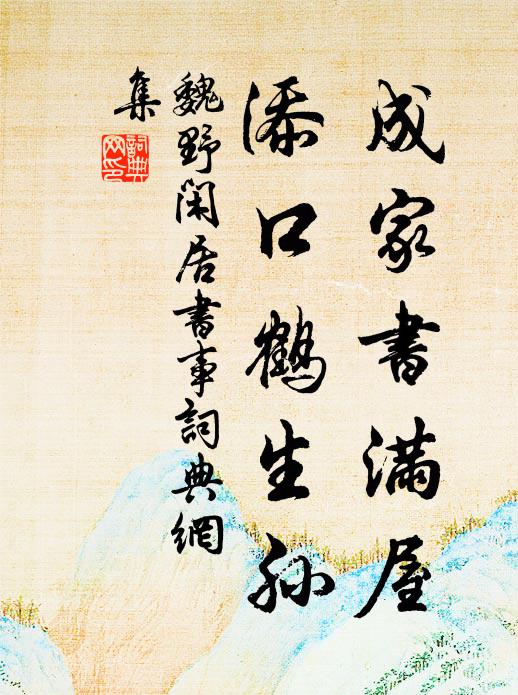 成家書滿屋
添口鶴生孫
魏野閑居書事詞典網
集
詞典
网印